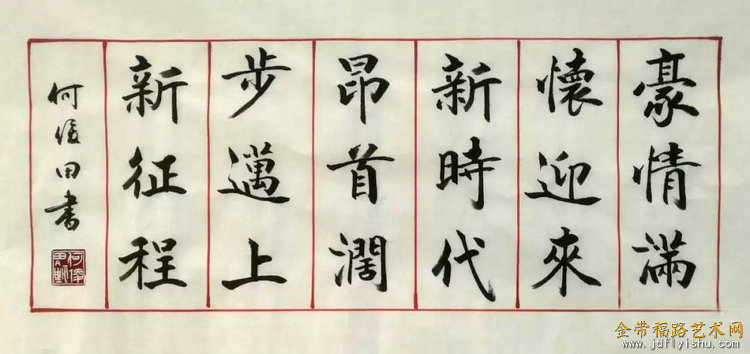 豪情滿
懷迎來
新時代
昂首濶
步邁上
新征程
何俊田書
金带福路艺术网
www.jdflyishu.com